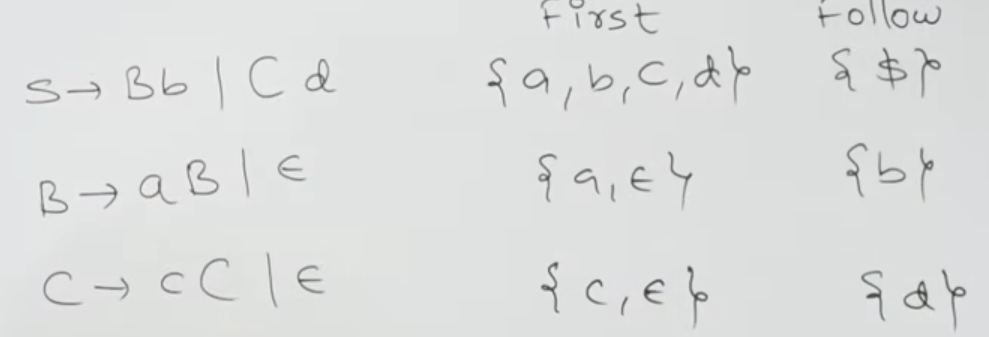 First Follow
S → Bb | Cd {a, b, c, d} {$}
B → aB | ϵ {a, ϵ} {b}
C → cC | ϵ {c, ϵ} {d}